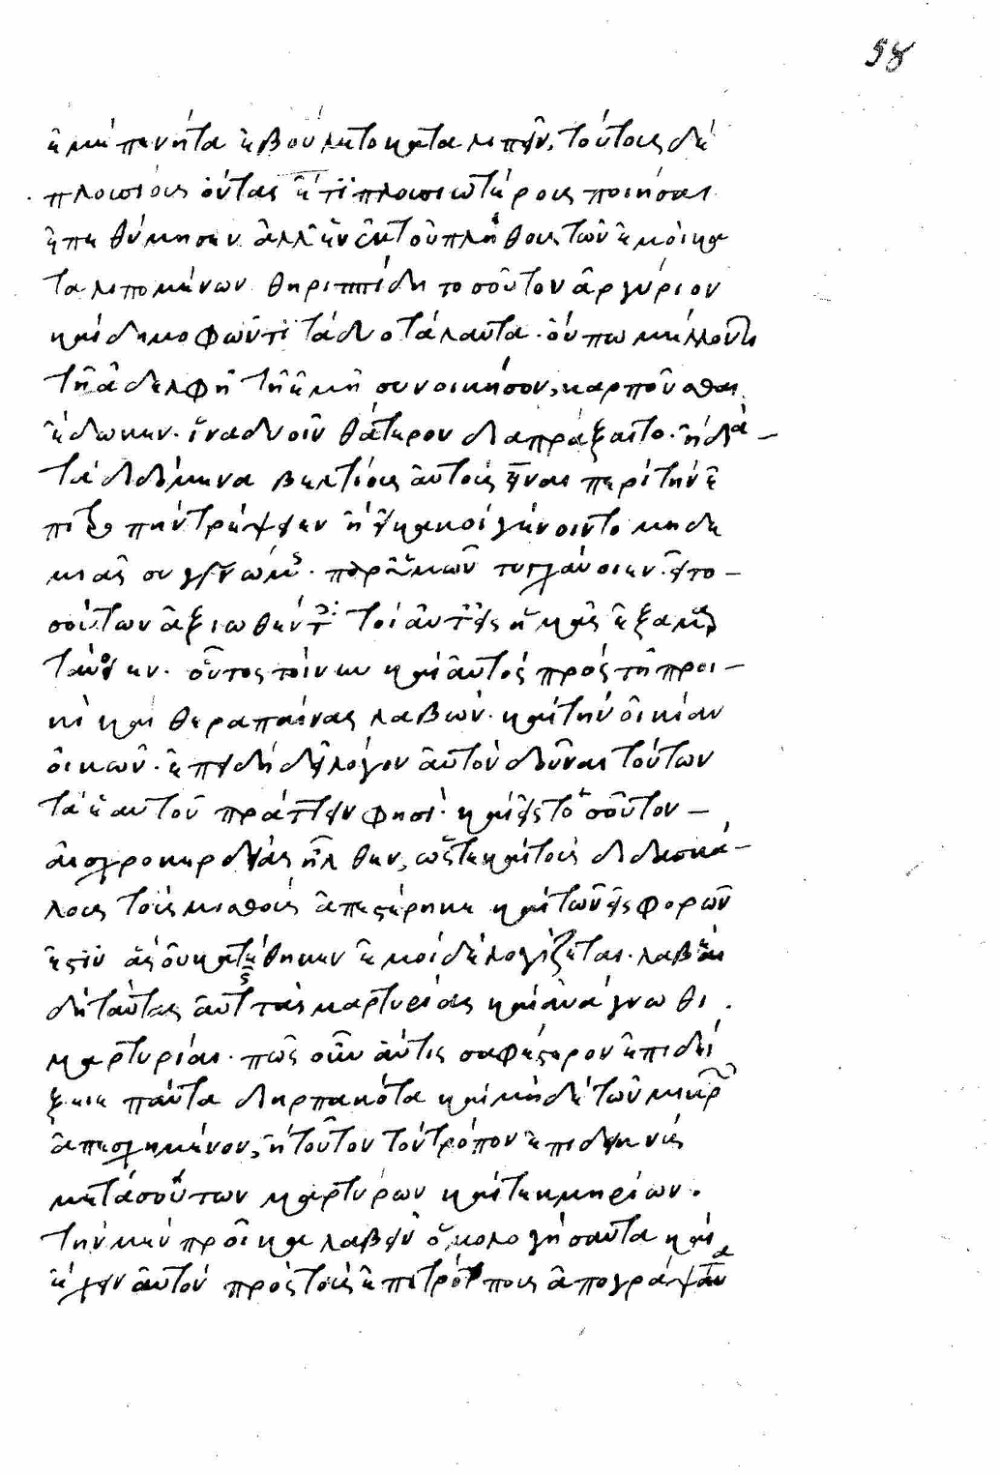 ἐμὲ πένητα ἐβούλετο καταλιπεῖν, τούτους δὲ
πλουσίους ὄντας ἔτι πλουσιωτέρους ποιῆσαι
ἐπεθύμησεν ἀλλ' ἕνεκ τοῦ πλήθους τῶν ἐμοὶ κα
ταλιπομένων θηριππίδη τοσοῦτον ἀργύριον
καὶ δημοφῶντι τὰ δύο τάλαντα. οὔπω μέλλοντι
τῆ ἀδελφῆ τῆ ἐμῆ συνοικήσειν, καρποῦσθαι
ἔδωκεν. ἵνα δυοῖν θάτερον διαπράξαιτο. ἢ διὰ
τὰ διδόμενα βελτίους αὐτοὺς εἶναι περὶ τὴν ἐ
πιτροπὴν τρέψειεν ἢ εἰ κακοὶ γένοιντο μηδε
μιᾶς συγγνώμης. παρ' ὑμῶν τυγχάνοιεν. εἰ το
σούτων ἀξιωθέντες τοιαῦτ' εἰς ἡμᾶς ἐξαμαρ
τάνοιεν. οὗτος τοίνυν καὶ αὐτὸς πρὸς τῆ προι
κὶ καὶ θεραπαίνας λαβὼν. καὶ τὴν οἰκίαν
οἰκῶν. ἐπειδὴ δεῖ λόγον αὐτὸν δοῦναι τούτων
τὰ ἑαυτοῦ πράττειν φησί. καὶ εἰς τοσοῦτον
αἰσχροκερδείας ἦλθεν, ὥστε καὶ τοὺς διδασκά
λους τοὺς μισθοὺς ἀπεστέρηκε καὶ τῶν εἰσφορῶν
ἔστιν ἃς οὐ κατέθηκεν ἐμοὶ δὲ λογίζεται. λαβὲ
δὴ ταύτας αὐτοῖς τὰς μαρτυρίας καὶ ἀνάγνωθι.
μαρτυρίαι. πῶς οὖν ἄν τις σαφέστερον ἐπιδεί
ξειε πάντα διηρπακότα καὶ μηδὲ τῶν μικρῶν
ἀπεσχημένον, ἢ τοῦτον τὸν τρόπον ἐπιδεικνὺς
μετὰ τοσούτων μαρτύρων καὶ τεκμηρίων.
τὴν μὲν προῖκα λαβεῖν ὁμολογήσαντα καὶ
ἔχειν αὐτὸν πρὸς τοὺς ἐπιτρόπους ἀπογράψαντα